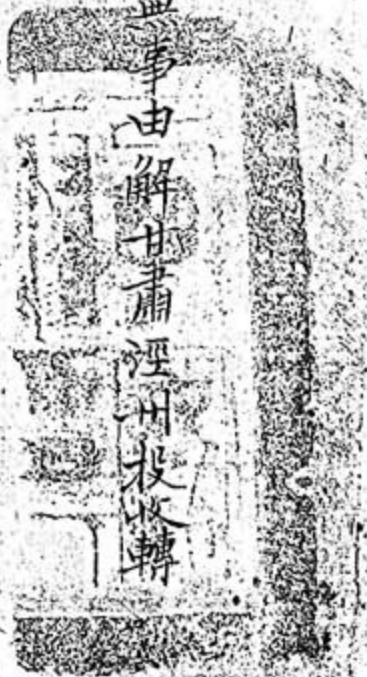 無事由解甘肅涇州投收轉